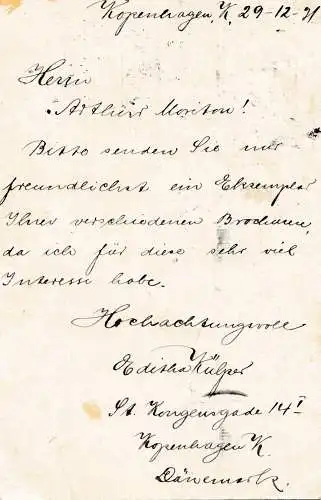 Kopenhagen, K, 29-12-91
Herrn
Arthur Moriton!
Bitte senden Sie mir
freundlichst ein Ekzemplar
Ihrer verschiedenen Brochuren,
da ich für diese sehr viel
Interesse habe.
Hochachtungsvoll
Editha Külper
St. Kongensgade 14 I
Kopenhagen K.
Dänemark.